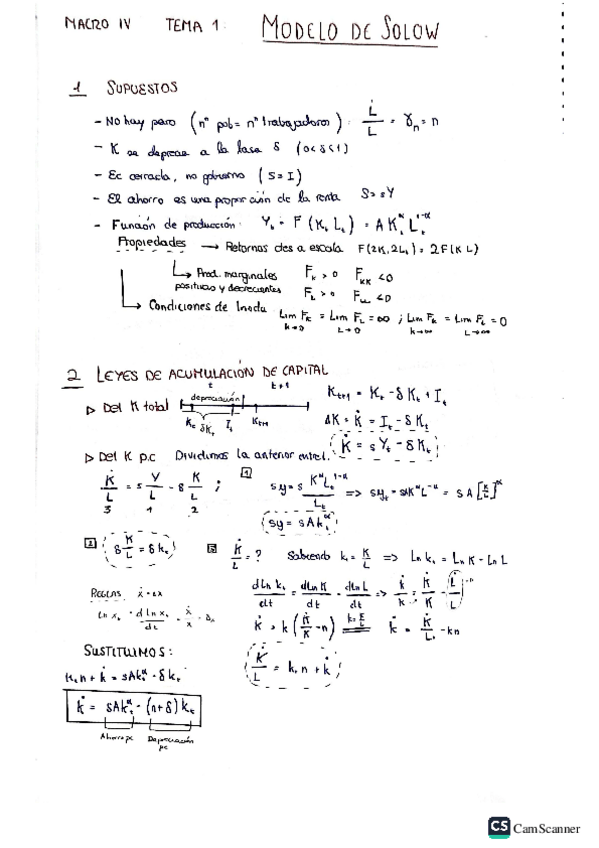 MACRO IV TEMA 1: MODELO DE SOLOW
1 SUPUESTOS
- No hay paro (nº pob = nº trabajadores): L̇/L = γₙ = n
- K se deprecia a la tasa δ (0<δ<1)
- Ec cerrada, no gobierno (S=I)
- El ahorro es una proporción de la renta S=sY
- Función de producción: Yₜ = F(KₜLₜ) = AKₜ^α Lₜ^1-α
Propiedades → Retornos ctes a escala F(2K,2Lₜ) = 2F(K L)
↳ Prod. marginales positivas y decrecientes F_K > 0 F_KK < 0
F_L > 0 F_LL < 0
↳ Condiciones de Inada Lim F_K = Lim F_L = ∞ ; Lim F_K = Lim F_L = 0
K→0 L→0 K→∞ L→∞
2 LEYES DE ACUMULACIÓN DE CAPITAL
▷ Del K total t t+1
depreciación
Kₜ δKₜ Iₜ Kₜ₊₁
Kₜ₊₁ = Kₜ - δKₜ + Iₜ
ΔK = K̇ = Iₜ - δKₜ
K̇ = sYₜ - δKₜ
▷ Del K p.c Dividimos la anterior entre L
K̇/L = s Y/L - δ K/L ;
3 1 2
1 sy = s Kₜ^α Lₜ^1-α / Lₜ => syₜ = sAK^α L^-α = sA[K/L]^α
sy = sAkₜ^α
2 δ K/L = δkₜ
3 K̇/L = ? Sabiendo kₜ = K/L => Ln kₜ = Ln K - Ln L
dLn kₜ/dt = dLn K/dt - dLn L/dt => k̇/k = K̇/K - L̇/L = n
REGLAS ẋ = Δx
Ln xₜ = dLn xₜ/dt = ẋ/x = γₓ
k̇ = k(K̇/K - n) => k̇ = K̇/L - kn
K̇/L = kₜn + k̇
SUSTITUIMOS:
kₜn + k̇ = sAkₜ^α - δkₜ
k̇ = sAkₜ^α - (n+δ)kₜ
Ahorro pc Depreciación pc
CS CamScanner